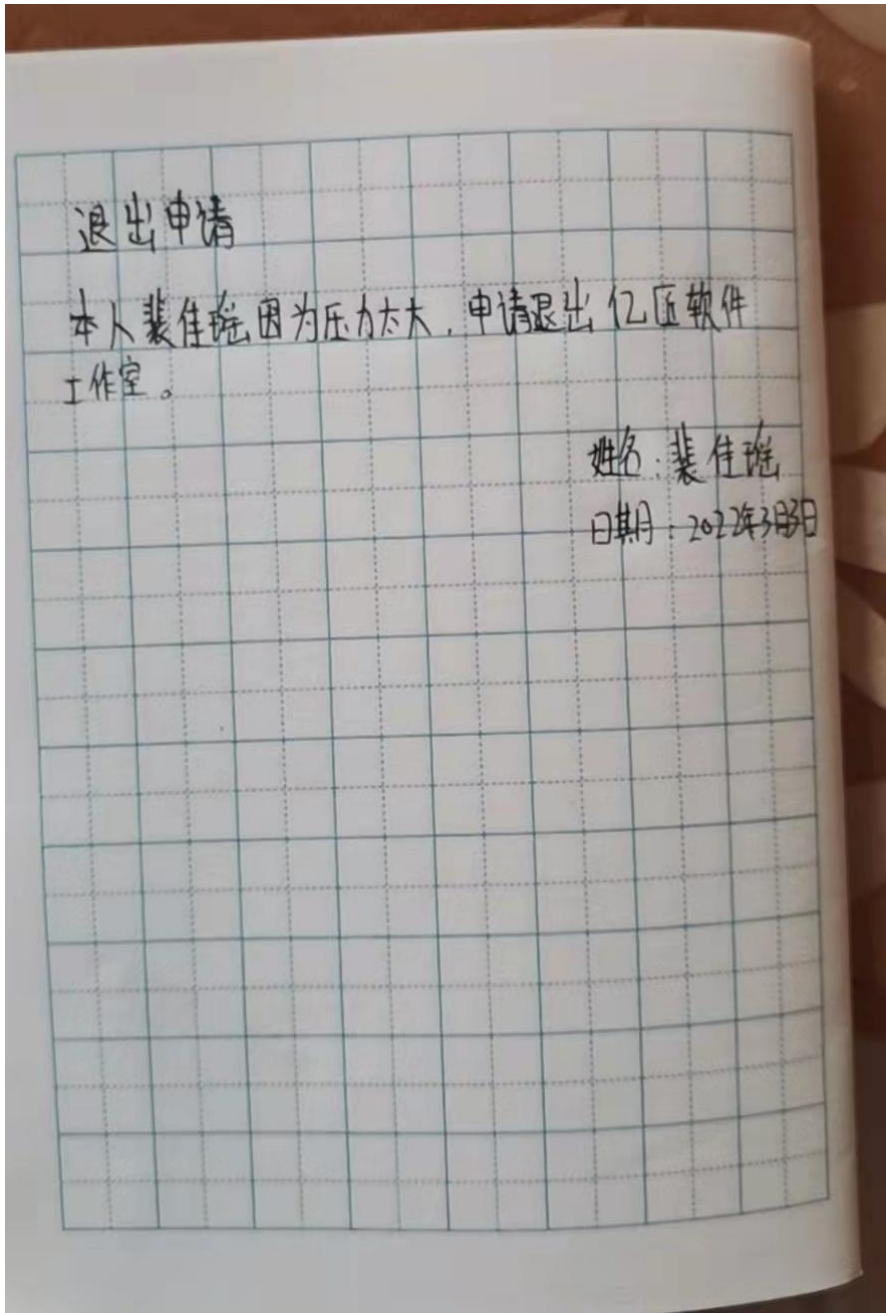 退出申请
本人裴佳瑶因为压力太大，申请退出亿匠软件
工作室。
姓名：裴佳瑶
日期：2022年3月3日